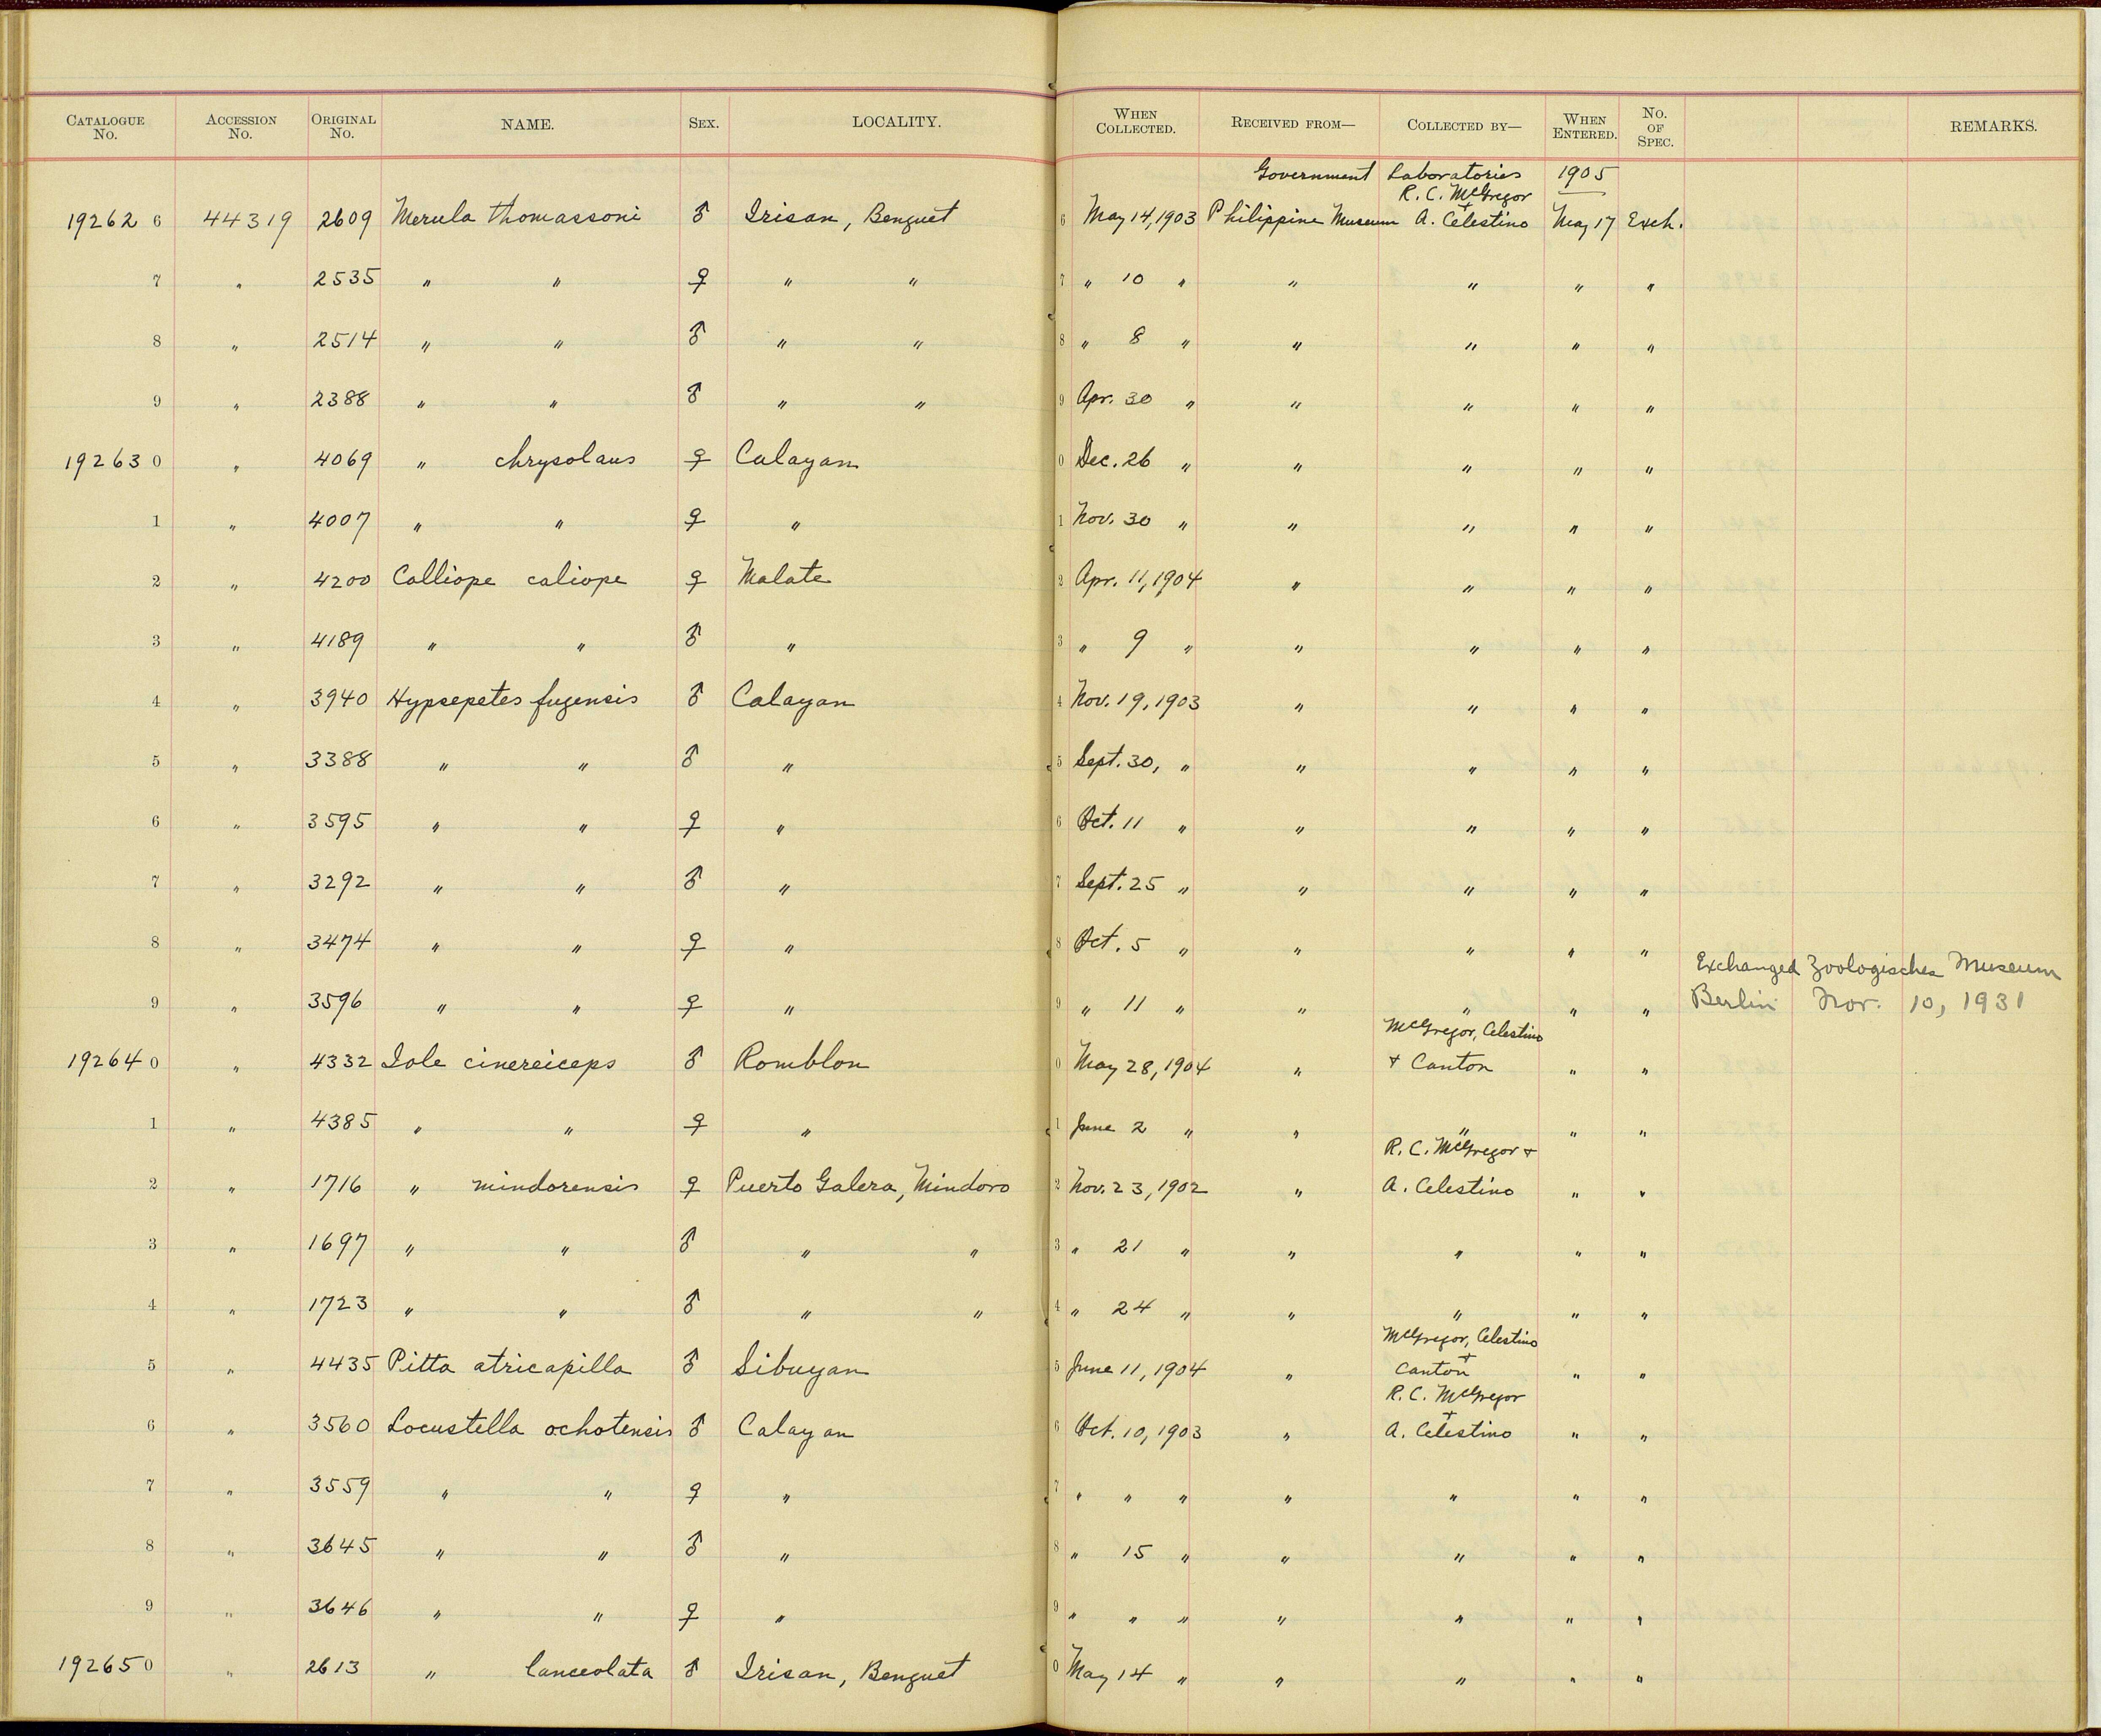 CATALOGUE No. ACCESSION No. ORIGINAL No. NAME. SEX. LOCALITY. WHEN COLLECTED. RECEIVED FROM— COLLECTED BY— WHEN ENTERED. No. OF SPEC. REMARKS.
Government Laboratories 1905
R. C. McGregor
19262 6 44319 2609 Merula thomassoni ♂ Irisan, Benguet 6 May 14, 1903 Philippine Museum + A. Celestino May 17 Exch.
7 " 2535 " " ♀ " " 7 " 10 " " " " "
8 " 2514 " " ♂ " " 8 " 8 " " " " "
9 " 2388 " " ♂ " " 9 Apr. 30 " " " " "
19263 0 " 4069 " chrysolaus ♀ Calayan 0 Dec. 26 " " " " "
1 " 4007 " " ♀ " 1 Nov. 30 " " " " "
2 " 4200 Calliope caliope ♀ Malate 2 Apr. 11, 1904 " " " "
3 " 4189 " " ♂ " 3 " 9 " " " " "
4 " 3940 Hypsepetes fugensis ♂ Calayan 4 Nov. 19, 1903 " " " "
5 " 3388 " " ♂ " 5 Sept. 30, " " " " "
6 " 3595 " " ♀ " 6 Oct. 11 " " " " "
7 " 3292 " " ♂ " 7 Sept. 25 " " " " "
8 " 3474 " " ♀ " 8 Oct. 5 " " " " "
Exchanged Zoologisches Museum
9 " 3596 " " ♀ " 9 " 11 " " " " " Berlin Nov. 10, 1931
McGregor, Celestino
19264 0 " 4332 Iole cinereiceps ♂ Romblon 0 May 28, 1904 " + Canton " "
1 " 4385 " " ♀ " 1 June 2 " " " " "
R. C. McGregor +
2 " 1716 " mindorensis ♀ Puerto Galera, Mindoro 2 Nov. 23, 1902 " A. Celestino " "
3 " 1697 " " ♂ " " 3 " 21 " " " " "
4 " 1723 " " ♂ " " 4 " 24 " " " " "
McGregor, Celestino
5 " 4435 Pitta atricapilla ♂ Sibuyan 5 June 11, 1904 " + Canton " "
R. C. McGregor
6 " 3560 Locustella ochotensis ♂ Calayan 6 Oct. 10, 1903 " + A. Celestino " "
7 " 3559 " " ♀ " 7 " " " " " " "
8 " 3645 " " ♂ " 8 " 15 " " " " "
9 " 3646 " " ♀ " 9 " " " " " " "
19265 0 " 2613 " lanceolata ♂ Irisan, Benguet 0 May 14 " " " " "